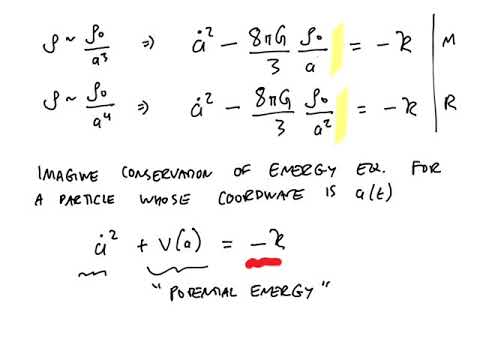 ρ ~ ρ₀/a³ ⇒ ȧ² − 8πG/3 ρ₀/a = −k | M
ρ ~ ρ₀/a⁴ ⇒ ȧ² − 8πG/3 ρ₀/a² = −k | R
IMAGINE CONSERVATION OF ENERGY EQ. FOR
A PARTICLE WHOSE COORDINATE IS a(t)
ȧ² + V(a) = −k
"POTENTIAL ENERGY"